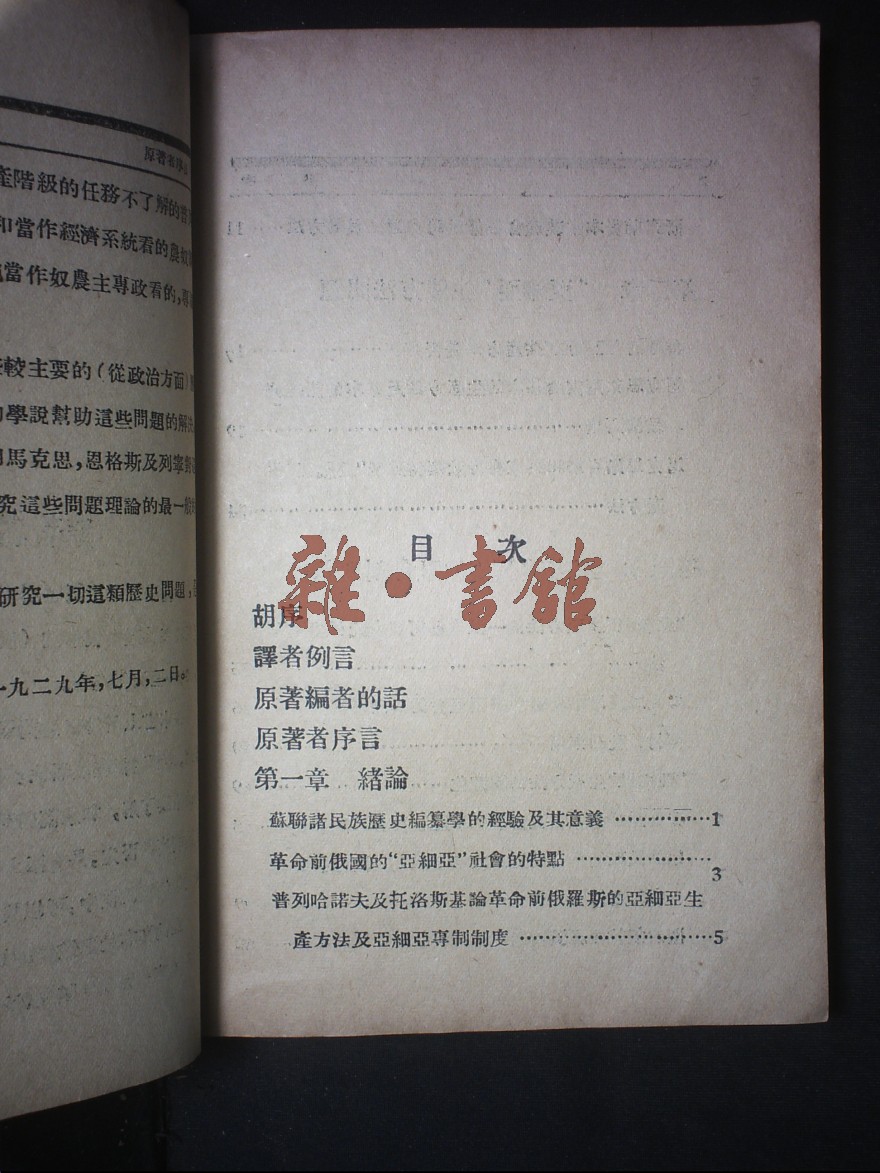 原著者序言
產階級的任務不了解的
和當作經濟系統看的農奴
當作奴農主專政看的，專
較主要的（從政治方面）
學說幫助這些問題的解決
馬克思，恩格斯及列寧
究這些問題理論的最一般
研究一切這類歷史問題，
一九二九年，七月，二日。
目 次
雜·書館
胡序
譯者例言
原著編者的話
原著者序言
第一章 緒論
蘇聯諸民族歷史編纂學的經驗及其意義 ……………1
革命前俄國的“亞細亞”社會的特點 …………………3
普列哈諾夫及托洛斯基論革命前俄羅斯的亞細亞生
產方法及亞細亞專制制度 …………………………5